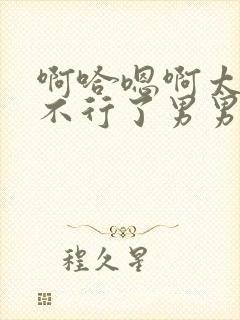 啊哈嗯啊太
不行了男男
程久星